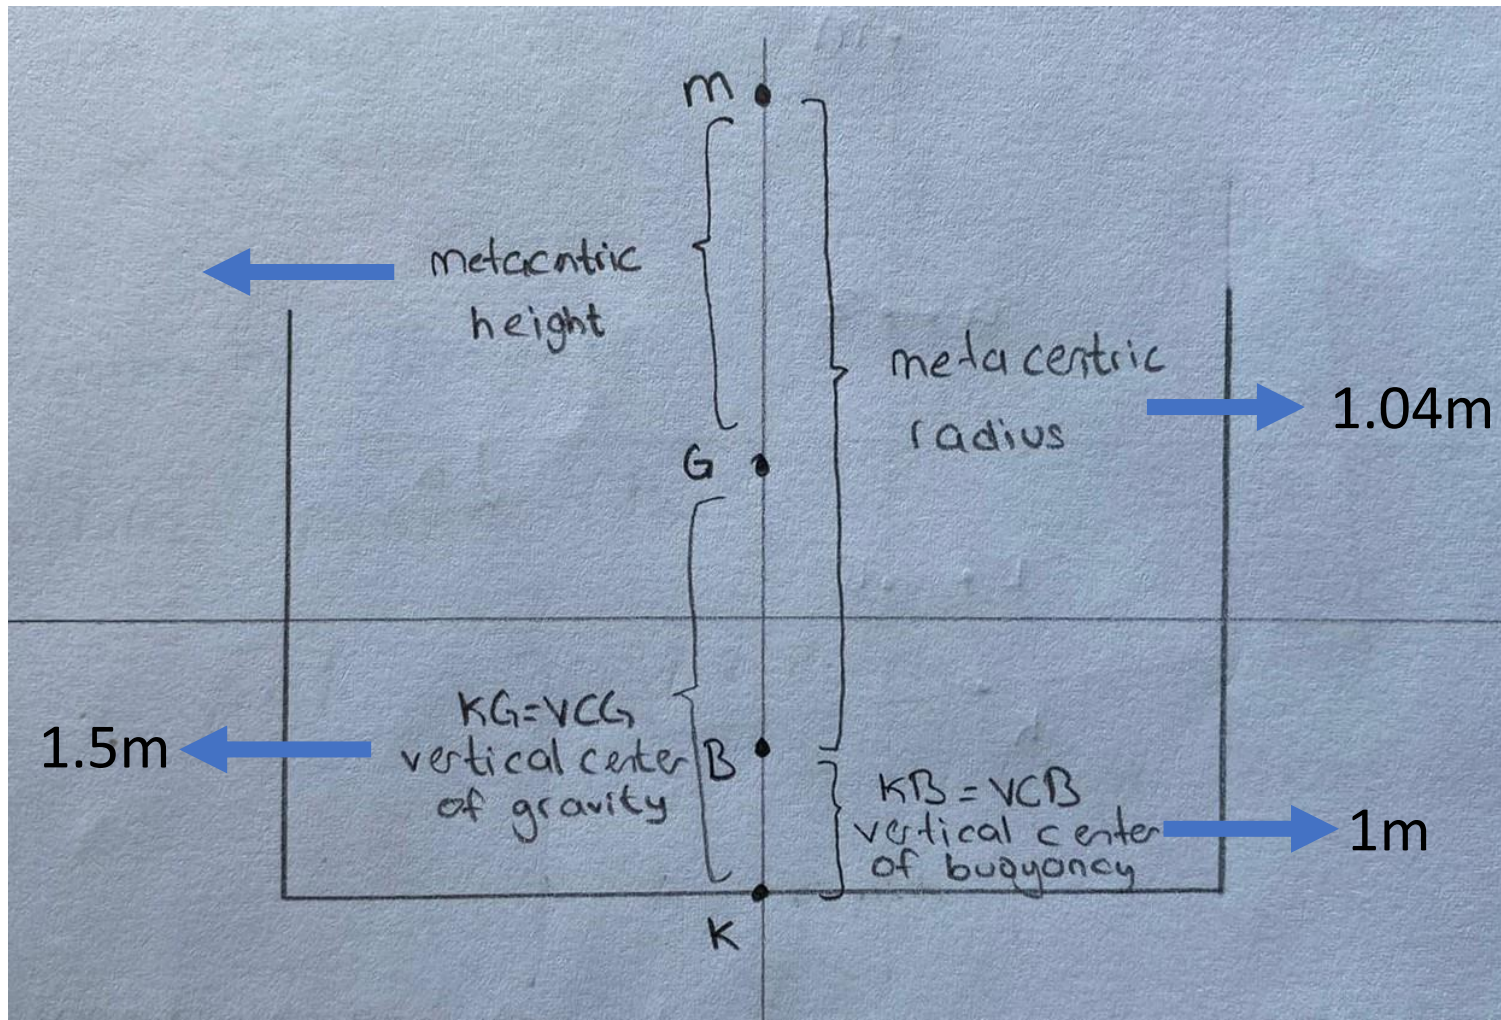 M
metacntric
height
metacentric
radius
1.04m
G
KG=VCG
vertical center
of gravity
1.5m
B
KB=VCB
vertical center
of buoyancy
1m
K